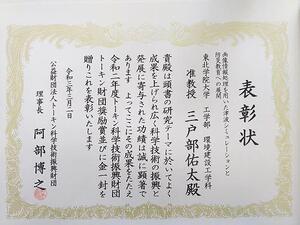 表彰状
画像情報処理を用いた津波シミュレーションと
防災教育への展開
東北学院大学 工学部 環境建設工学科
准教授 三戸部佑太殿
貴殿は頭書の研究テーマに於いてよく
成果を上げられ広く科学技術の振興と
発展に寄与された功績は誠に顕著で
あります よってここにその成果をたたえ
令和二年度トーキン科学技術振興財団
トーキン財団奨励賞並びに金一封を
贈りこれを表彰いたします
令和三年三月二日
公益財団法人トーキン科学技術振興財団
理事長 阿部博之